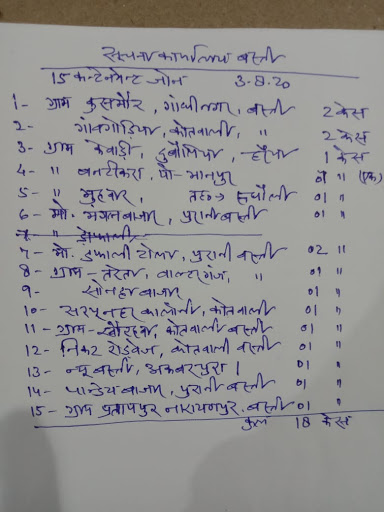 सूचना कार्यालय बस्ती
15 कन्टेनमेन्ट जोन 3-8-20
1- ग्राम कुसमौर, गांधीनगर, बस्ती 2 केस
2- गांवगोड़िया, कोतवाली, " 2 केस
3- ग्राम केवाड़ी, दुबौलिया, 1 केस
4- " बनटीकरा, पो- भानपुर 01 " (एक)
5- " मुहचार, तह० रुधौली 01 "
6- मो. मंगलबाजार, पुरानी बस्ती 01 "
7- " डफाली
7- मो. डफाली टोला, पुरानी बस्ती 02 "
8- ग्राम - तरेता, वाल्टरगंज, " 01 "
9- सोनहा बाजार 01 "
10- सरयू नहर कालोनी, कोतवाली 01 "
11- ग्राम- खौरहवा, कोतवाली बस्ती 01 "
12- निकट रोडवेज, कोतवाली बस्ती 01 "
13- न्यू बस्ती, अकबरपुरा । 01 "
14- पाण्डेय बाजार, पुरानी बस्ती 01 "
15- ग्राम प्रतापपुर नारायणपुर. बस्ती 01 "
कुल 18 केस